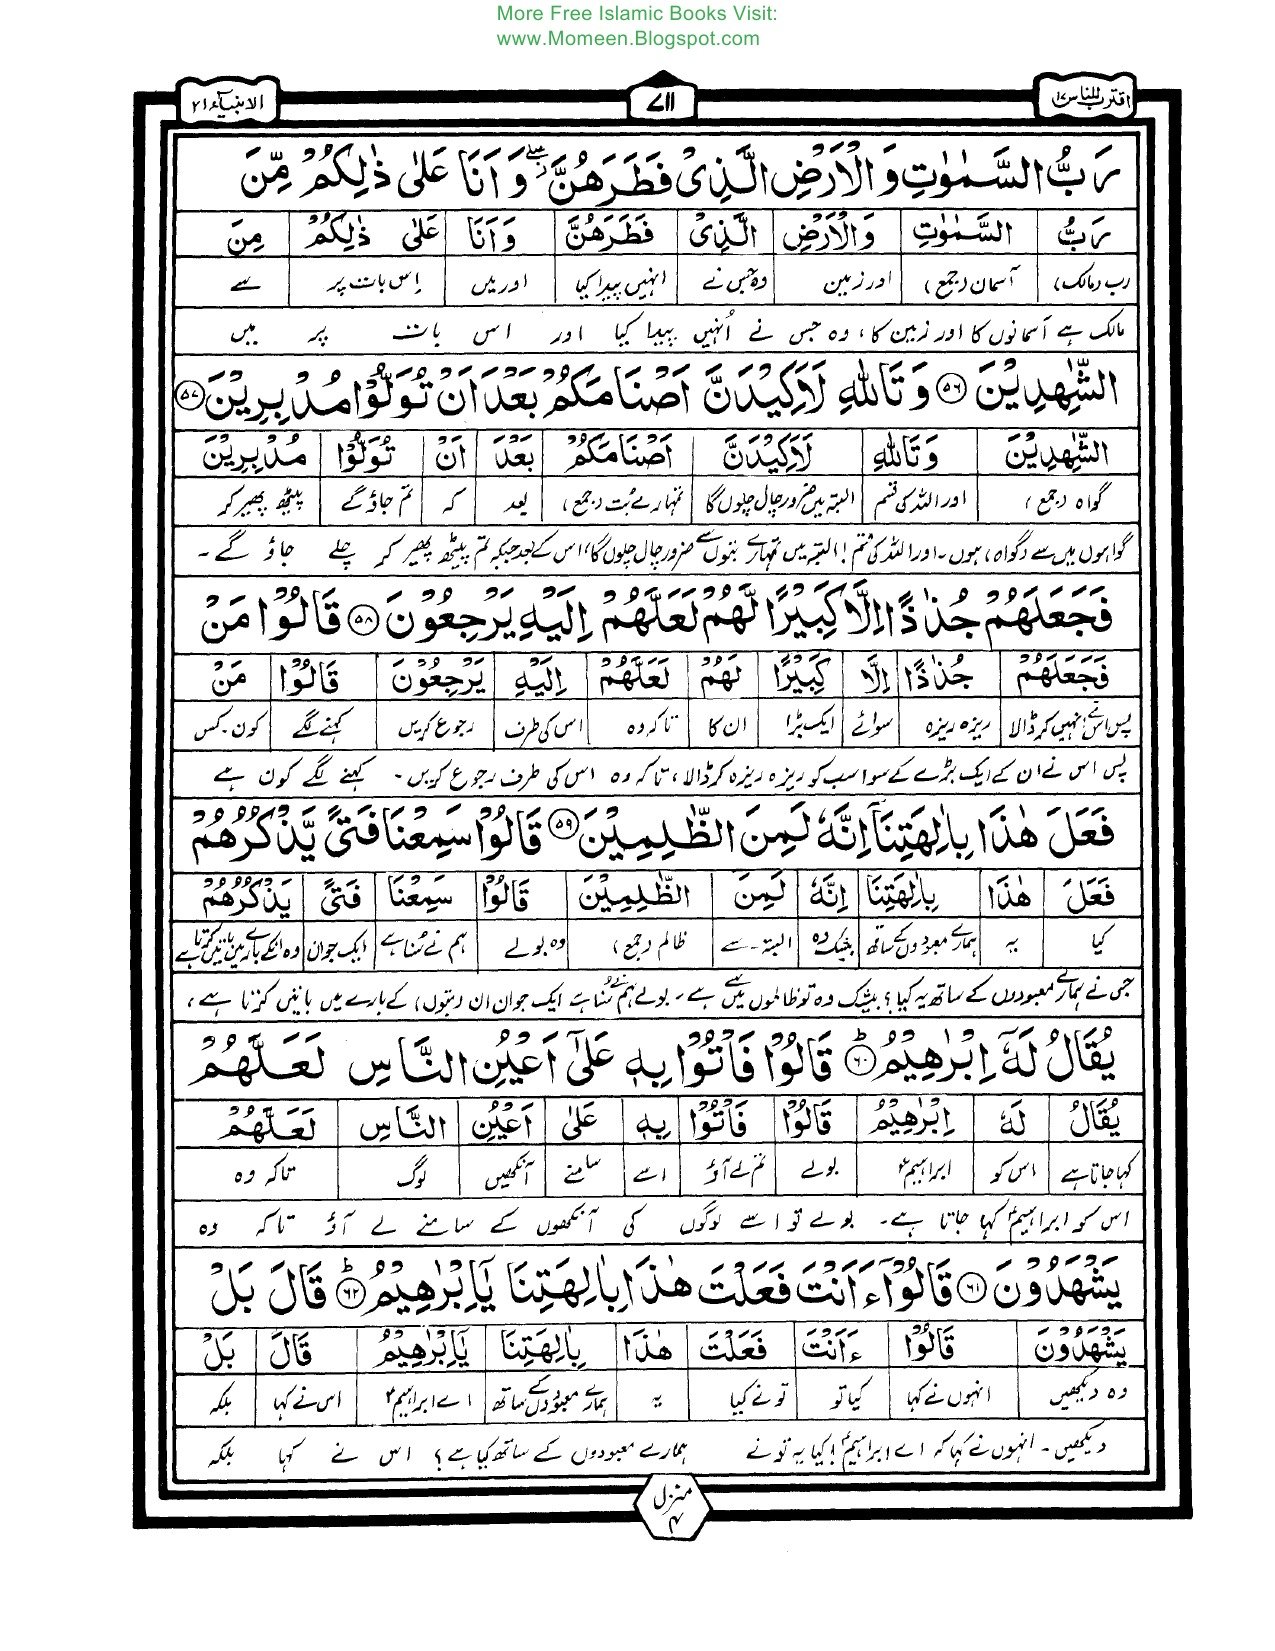 More Free Islamic Books Visit:
www.Momeen.Blogspot.com
اقترب للناس ١٧
٧١١
الانبیاء ٢١
رَبُّ السَّمٰوٰتِ وَالْاَرْضِ الَّذِیْ فَطَرَهُنَّ ۖ وَ اَنَا عَلٰى ذٰلِكُمْ مِّنَ
رَبُّ السَّمٰوٰتِ وَالْاَرْضِ الَّذِیْ فَطَرَهُنَّ وَاَنَا عَلٰى ذٰلِكُمْ مِنَ
رب (مالک) آسمان (جمع) اور زمین وہ جس نے انہیں پیدا کیا اور میں اس بات پر سے
مالک ہے آسمانوں کا اور زمین کا، وہ جس نے اُنہیں پیدا کیا اور اس بات پر میں
الشّٰهِدِیْنَ ﴿٥٦﴾ وَتَاللّٰهِ لَاَكِیْدَنَّ اَصْنَامَكُمْ بَعْدَ اَنْ تُوَلُّوْا مُدْبِرِیْنَ ﴿٥٧﴾
الشّٰهِدِیْنَ وَتَاللّٰهِ لَاَكِیْدَنَّ اَصْنَامَكُمْ بَعْدَ اَنْ تُوَلُّوْا مُدْبِرِیْنَ
گواہ (جمع) اور اللہ کی قسم البتہ میں ضرور چال چلوں گا تمہارے بُت (جمع) بعد کہ تم جاؤ گے پیٹھ پھیر کر
گواہوں میں سے (گواہ) ہوں۔ اور اللہ کی قسم! البتہ میں تمہارے بتوں سے ضرور چال چلوں گا، اس کے بعد جبکہ تم پیٹھ پھیر کر چلے جاؤ گے۔
فَجَعَلَهُمْ جُذٰذًا اِلَّا كَبِیْرًا لَّهُمْ لَعَلَّهُمْ اِلَیْهِ یَرْجِعُوْنَ ﴿٥٨﴾ قَالُوْا مَنْ
فَجَعَلَهُمْ جُذٰذًا اِلَّا كَبِیْرًا لَهُمْ لَعَلَّهُمْ اِلَیْهِ یَرْجِعُوْنَ قَالُوْا مَنْ
پس اس نے انہیں کر ڈالا ریزہ ریزہ سوائے ایک بڑا ان کا تاکہ وہ اس کی طرف رجوع کریں کہنے لگے کون۔کس
پس اس نے ان کے ایک بڑے کے سوا سب کو ریزہ ریزہ کر ڈالا، تاکہ وہ اس کی طرف رجوع کریں۔ کہنے لگے کون ہے
فَعَلَ هٰذَا بِاٰلِهَتِنَاۤ اِنَّهٗ لَمِنَ الظّٰلِمِیْنَ ﴿٥٩﴾ قَالُوْا سَمِعْنَا فَتًى یَّذْكُرُهُمْ
فَعَلَ هٰذَا بِاٰلِهَتِنَا اِنَّهٗ لَمِنَ الظّٰلِمِیْنَ قَالُوْا سَمِعْنَا فَتًى یَذْكُرُهُمْ
کیا یہ ہمارے معبودوں کے ساتھ بیشک وہ البتہ۔سے ظالم (جمع) وہ بولے ہم نے سُنا ہے ایک جوان وہ انکے بارے میں باتیں کرتا ہے
جس نے ہمارے معبودوں کے ساتھ یہ کیا؟ بیشک وہ تو ظالموں میں سے ہے۔ بولے ہم نے سُنا ہے ایک جوان ان (بتوں) کے بارے میں باتیں کرتا ہے،
یُقَالُ لَهٗۤ اِبْرٰهِیْمُ ﴿٦٠﴾ قَالُوْا فَاْتُوْا بِهٖ عَلٰۤى اَعْیُنِ النَّاسِ لَعَلَّهُمْ
یُقَالُ لَهٗ اِبْرٰهِیْمُ قَالُوْا فَاْتُوْا بِهٖ عَلٰى اَعْیُنِ النَّاسِ لَعَلَّهُمْ
کہا جاتا ہے اس کو ابراہیمؑ بولے تم لے آؤ اسے سامنے آنکھیں لوگ تاکہ وہ
اس کو ابراہیمؑ کہا جاتا ہے۔ بولے تو اسے لوگوں کی آنکھوں کے سامنے لے آؤ تاکہ وہ
یَشْهَدُوْنَ ﴿٦١﴾ قَالُوْۤا ءَاَنْتَ فَعَلْتَ هٰذَا بِاٰلِهَتِنَا یٰۤاِبْرٰهِیْمُ ﴿٦٢﴾ قَالَ بَلْ
یَشْهَدُوْنَ قَالُوْا ءَاَنْتَ فَعَلْتَ هٰذَا بِاٰلِهَتِنَا یٰۤاِبْرٰهِیْمُ قَالَ بَلْ
وہ دیکھیں انہوں نے کہا کیا تو تو نے کیا یہ ہمارے معبودوں کے ساتھ اے ابراہیمؑ اس نے کہا بلکہ
دیکھیں۔ انہوں نے کہا کہ اے ابراہیمؑ! کیا یہ تو نے ہمارے معبودوں کے ساتھ کیا ہے؟ اس نے کہا بلکہ
منزل
۴